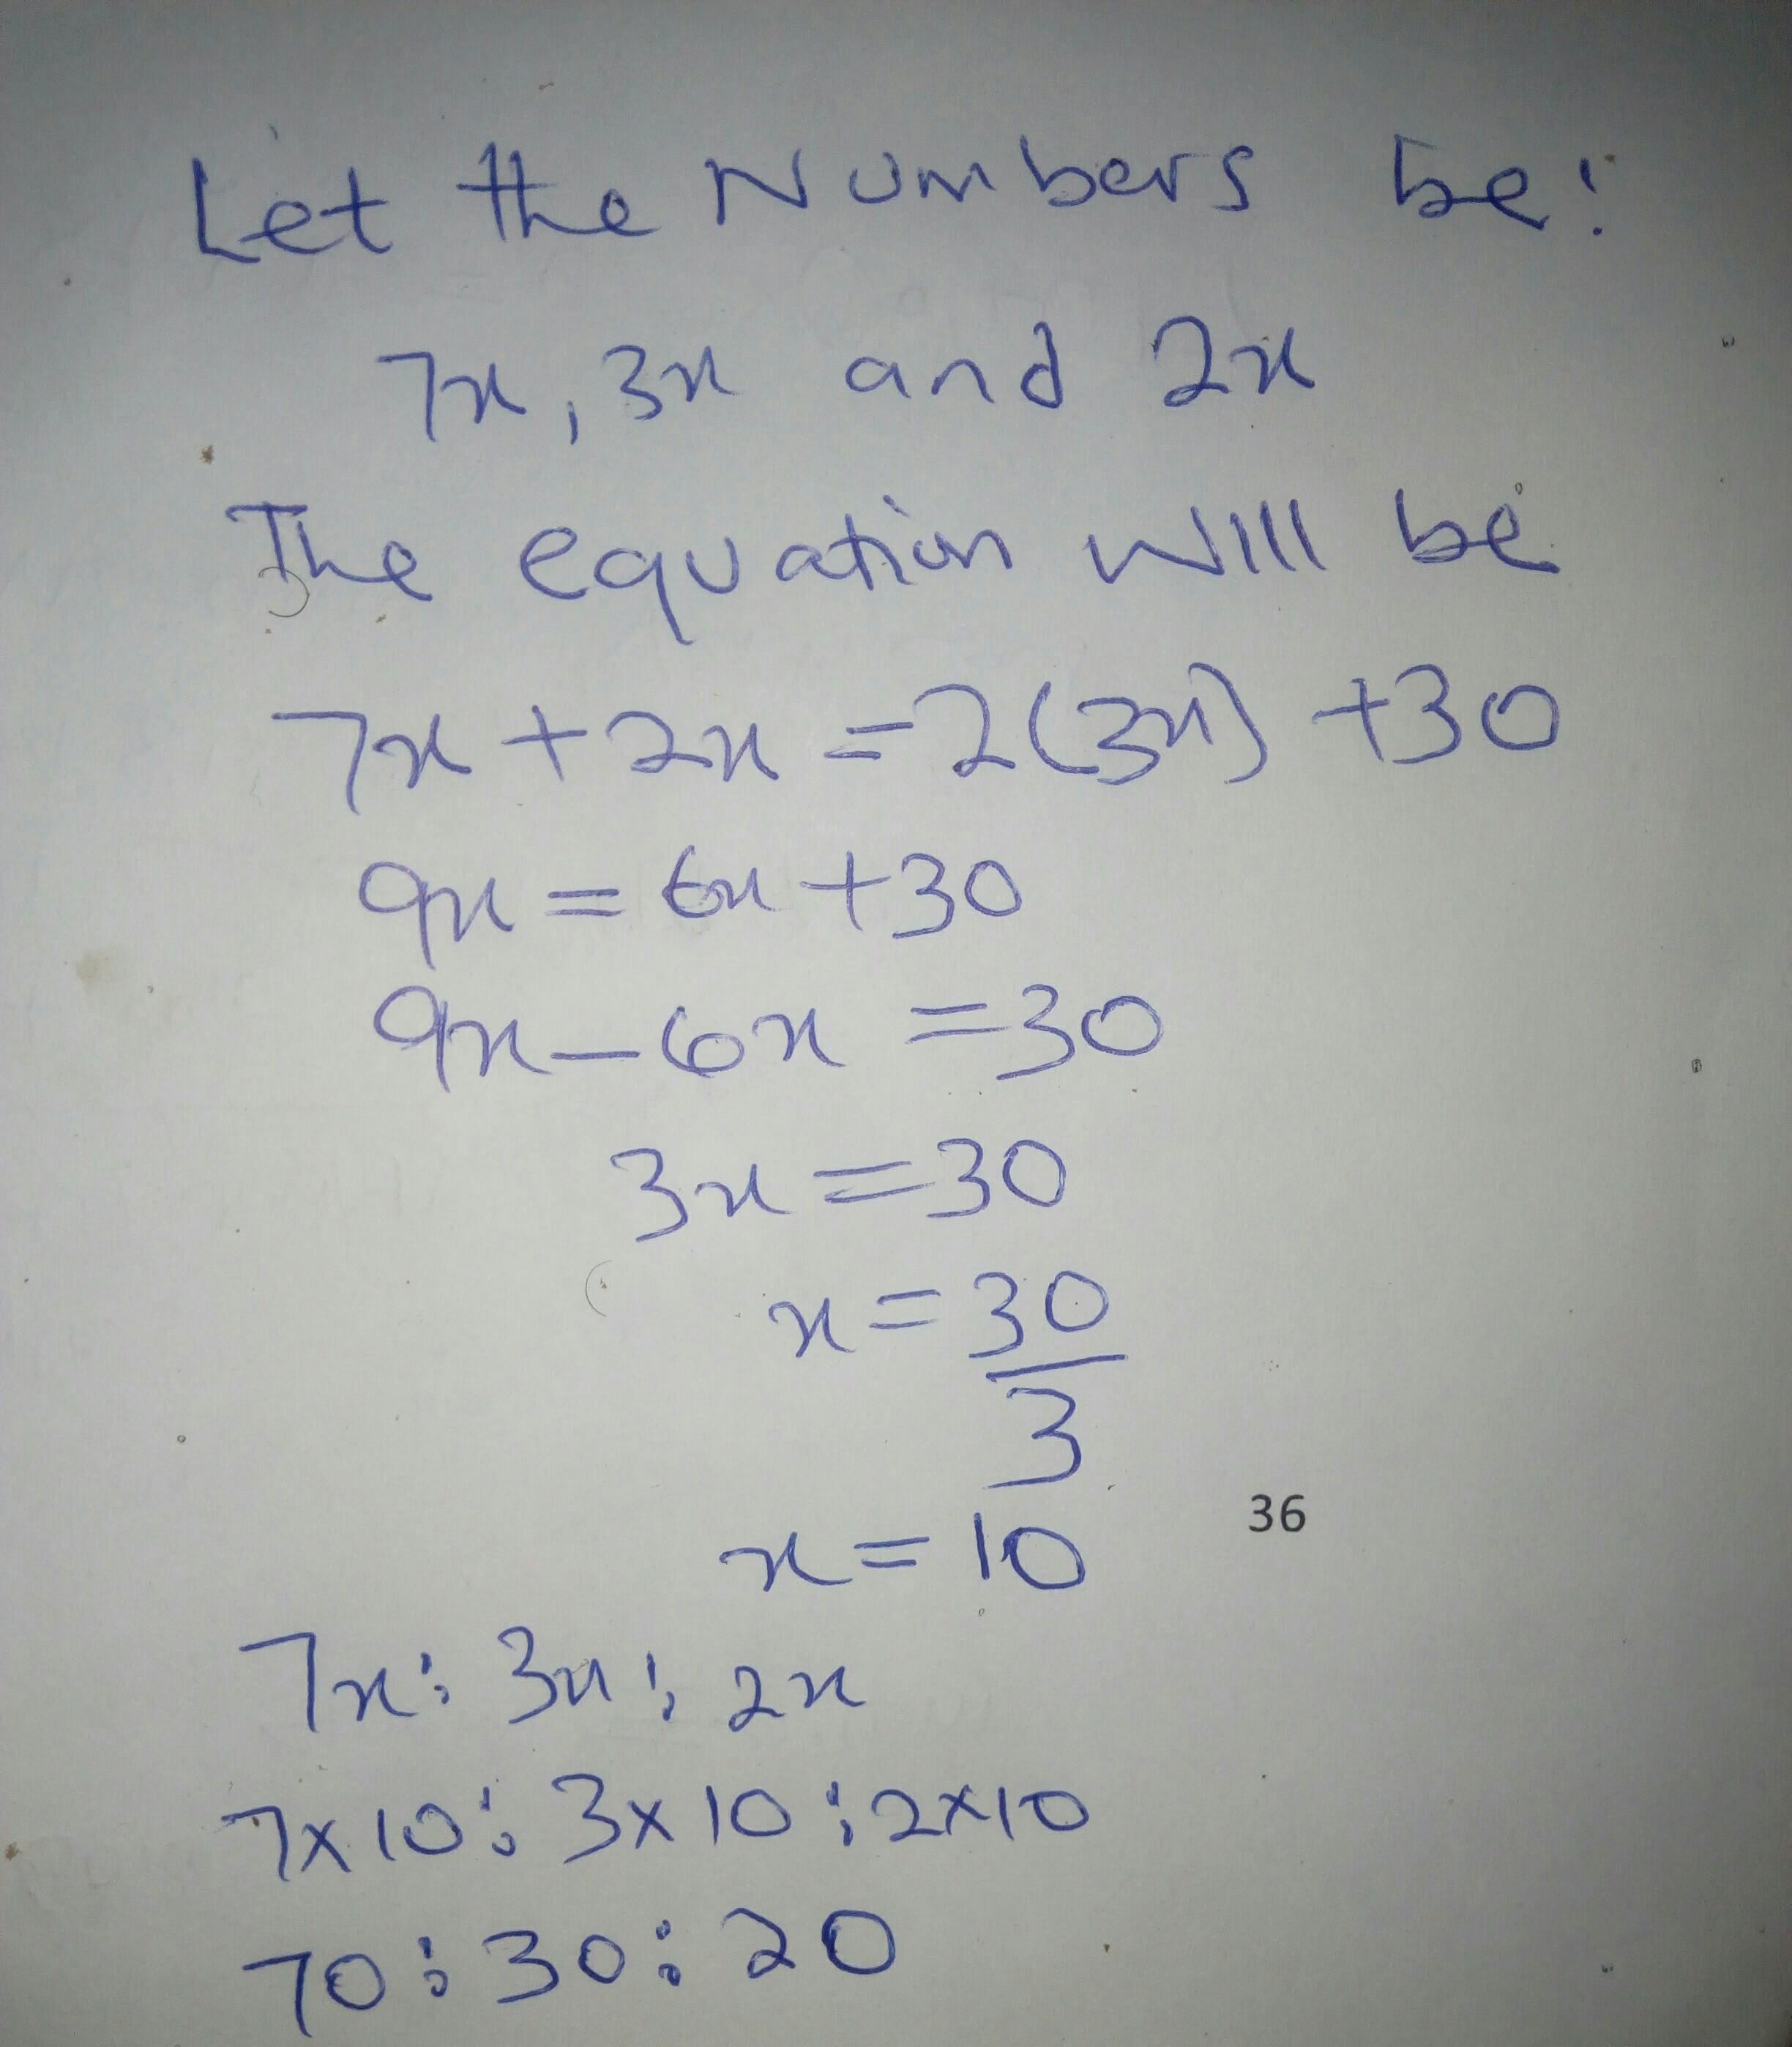 Let the Numbers be:
7x, 3x and 2x
The equation will be
7x + 2x = 2(3x) + 30
9x = 6x + 30
9x - 6x = 30
3x = 30
x = 30
3
36
x = 10
7x : 3x : 2x
7x10 : 3x10 : 2x10
70 : 30 : 20